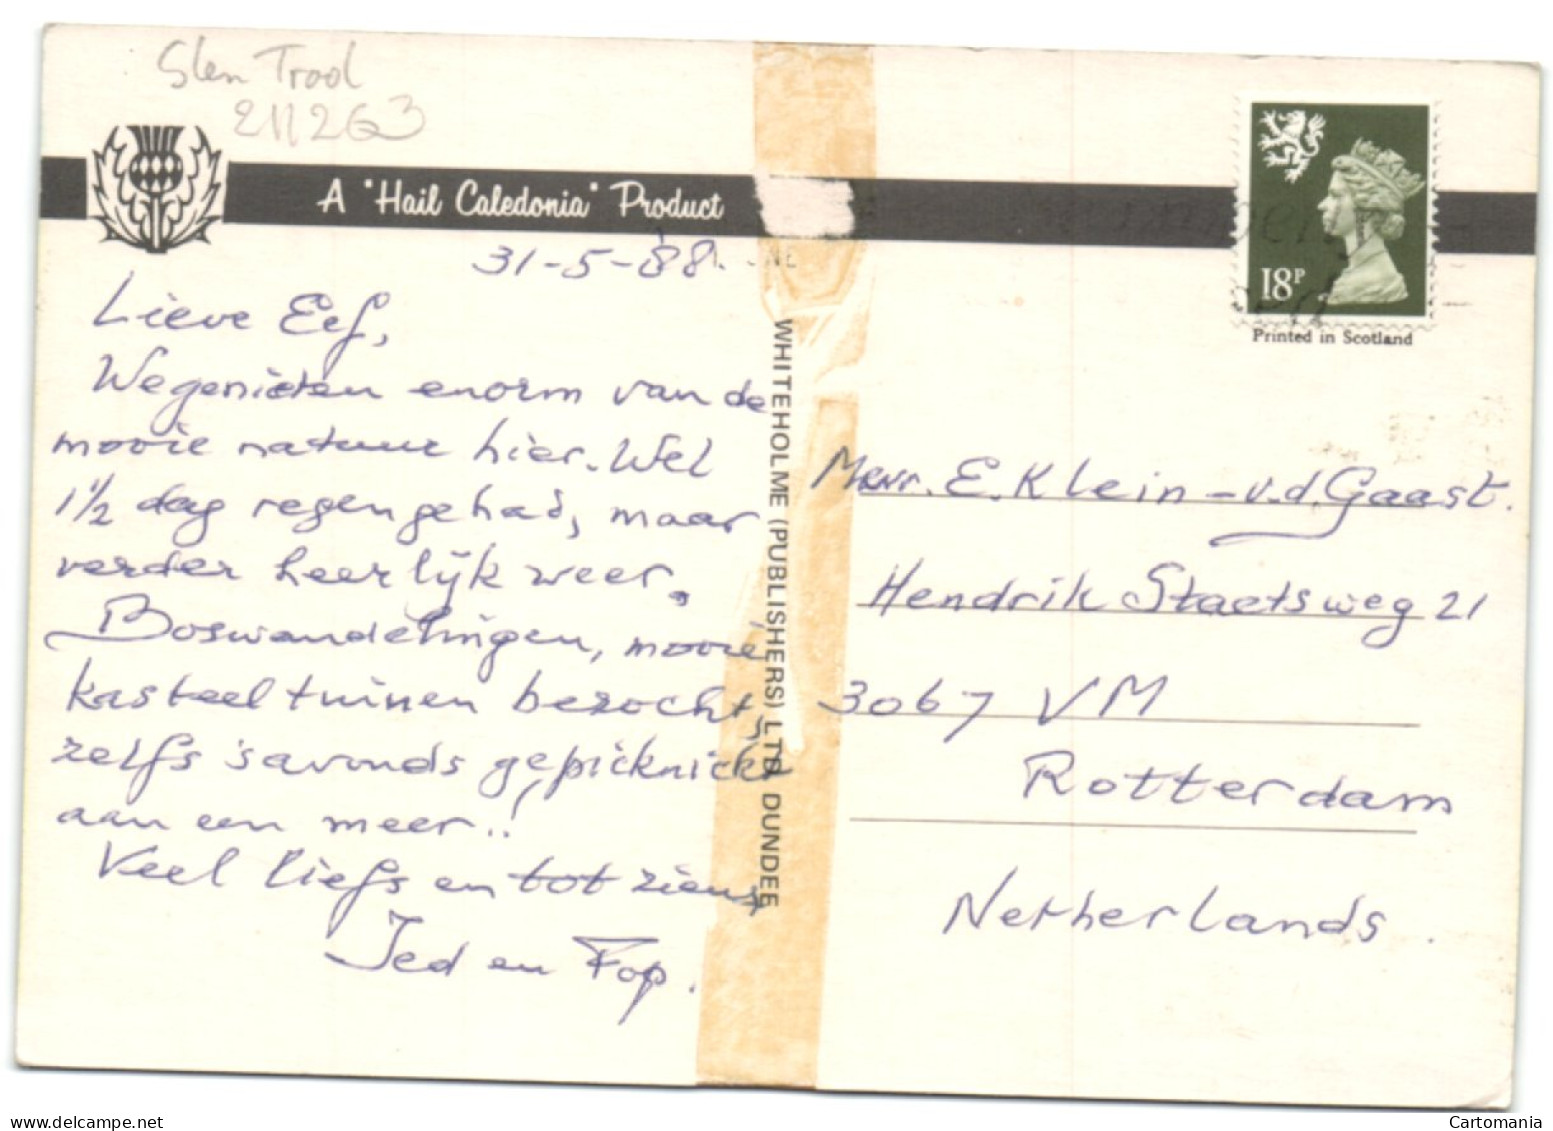 Glen Trool
211263
A "Hail Caledonia" Product
31-5-'88.
Lieve Eef,
We genieten enorm van de
mooie natuur hier. Wel
1½ dag regen gehad, maar
verder heerlijk weer.
Boswandelingen, mooie
kasteeltuinen bezocht,
zelfs 's avonds gepicknickt
aan een meer..!
Veel liefs en tot ziens
Jed en Fop.
WHITEHOLME (PUBLISHERS) LTD. DUNDEE
18P
Printed in Scotland
Mevr. E. Klein-v.d. Gaast.
Hendrik Staetsweg 21
3067 VM
Rotterdam
Netherlands.
Cartomania
www.delcampe.net